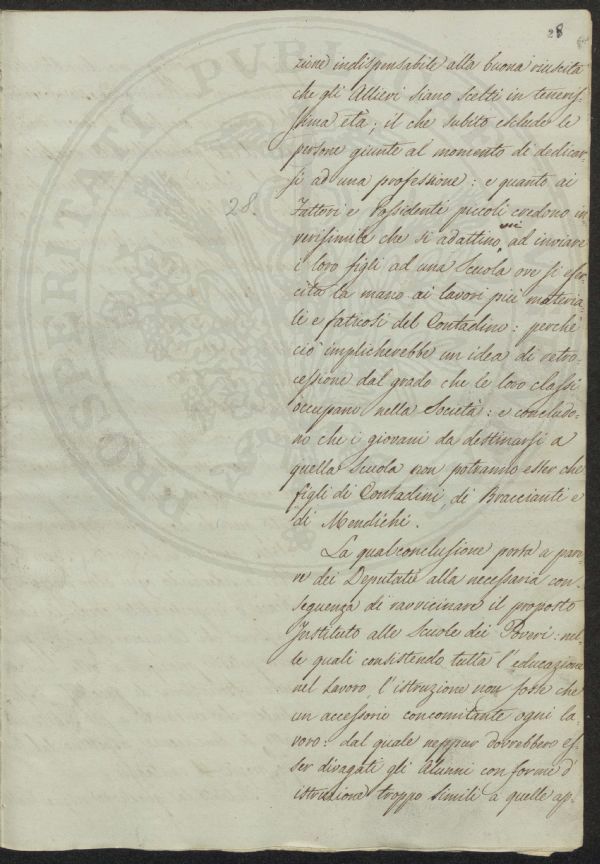 28
zione indispensabile alla buona riuscita
che gli Allievi siano scelti in teneris-
sima età; il che subito esclude le
persone giunte al momento di dedicar-
si ad una professione: e quanto ai
Fattori e Possidenti piccoli credono in
verisimile che si adattino, ad inviare
i loro figli ad una Scuola ove si eser-
cita la mano ai lavori più materia-
li e faticosi del Contadino: perchè
ciò implicherebbe un idea di retro-
cessione dal grado che le loro classi
occupano nella Società: e concludo-
no che i giovani da destinarsi a
quella Scuola non potranno esser che
figli di Contadini, di Braccianti e
di Mendichi.
28.
La qual conclusione porta a pare-
re dei Deputati alla necessaria con-
seguenza di ravvicinare il proposto
Instituto alle Scuole dei Poveri: nel-
le quali consistendo tutta l'educazione
nel Lavoro, l'istruzione non fosse che
un accessorio concomitante ogni la-
voro: dal quale neppur dovrebbero es-
ser divagati gli Alunni con forme d'
istruzione troppo simili a quelle ap-
PROSPERITATI PUBL